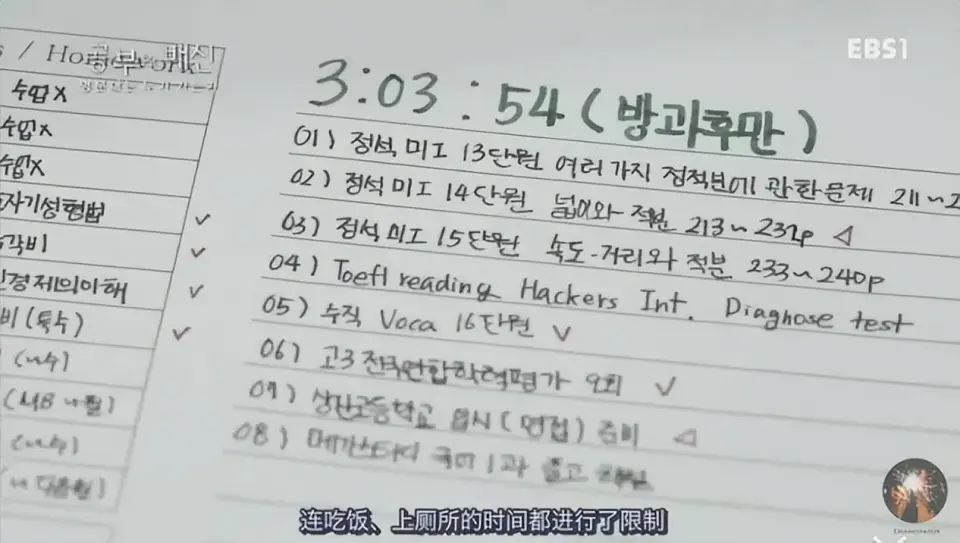 EBS1
공부의 배신
/ Homework
수업X
수업X
수업X
자기성형법
각비
경제의이해
비(특수)
3:03:54 (방과후만)
01) 정석 미I 13단원 여러가지 접적분에 관한문제 211~2
02) 정석 미I 14단원 넓이와 적분 213~232p
03) 정석 미I 15단원 속도-거리와 적분 233~240p
04) Toefl reading Hackers Int. Diagnose test
05) 수직 Voca 16단원
06) 고3 전국연합학력평가 9회
07) 상산고등학교 입시 (면접) 준비
08) 메가스터디 국어 1과 풀고
连吃饭、上厕所的时间都进行了限制